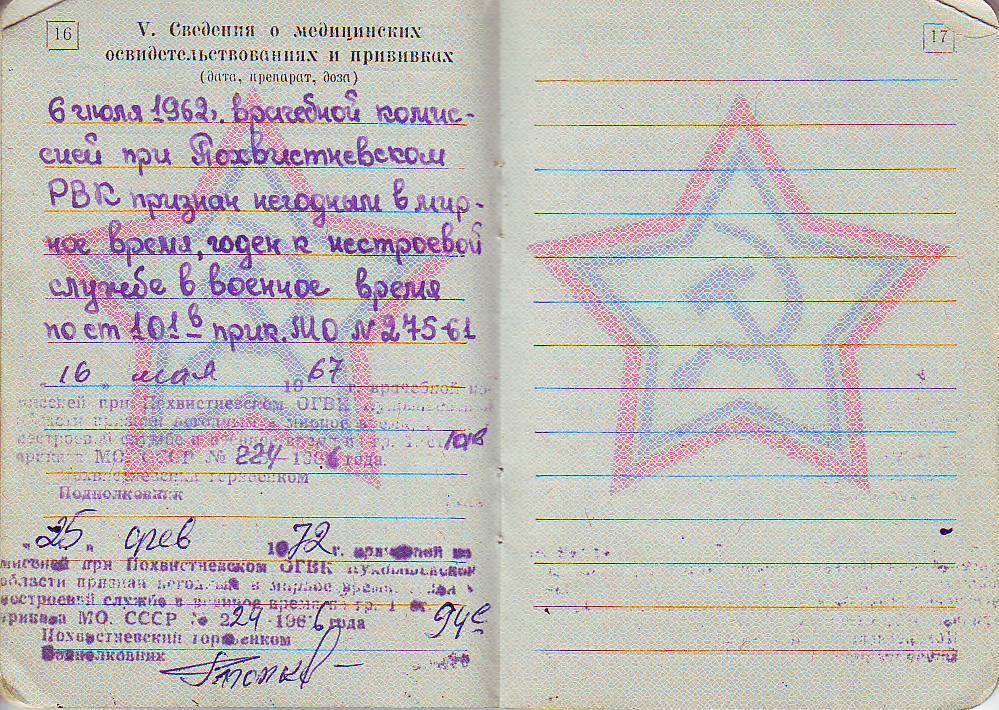 16
V. Сведения о медицинских
освидетельствованиях и прививках
(дата, препарат, доза)
6 июля 1962г. врачебной комис-
сией при Похвистневском
РВК признан негодным в мир-
ное время, годен к нестроевой
службе в военное время
по ст 101 в прик. МО N 275-61
"16" мая 1967 г. врачебной ко-
миссией при Похвистневском ОГВК Куйбышевской
области признан негодным в мирное время,
нестроевой службе в военное время по гр. 1 ст. 101в
приказа МО. СССР № 224 1966 года.
Похвистневский горвоенком
Подполковник
"25" фев 1972 г. врачебной ко
миссией при Похвистневском ОГВК Куйбышевской
области признан негодным в мирное время
нестроевой службе в военное время по гр. 1 ст. 94с
приказа МО. СССР № 224 1966 года
Похвистневский горвоенком
Подполковник
17